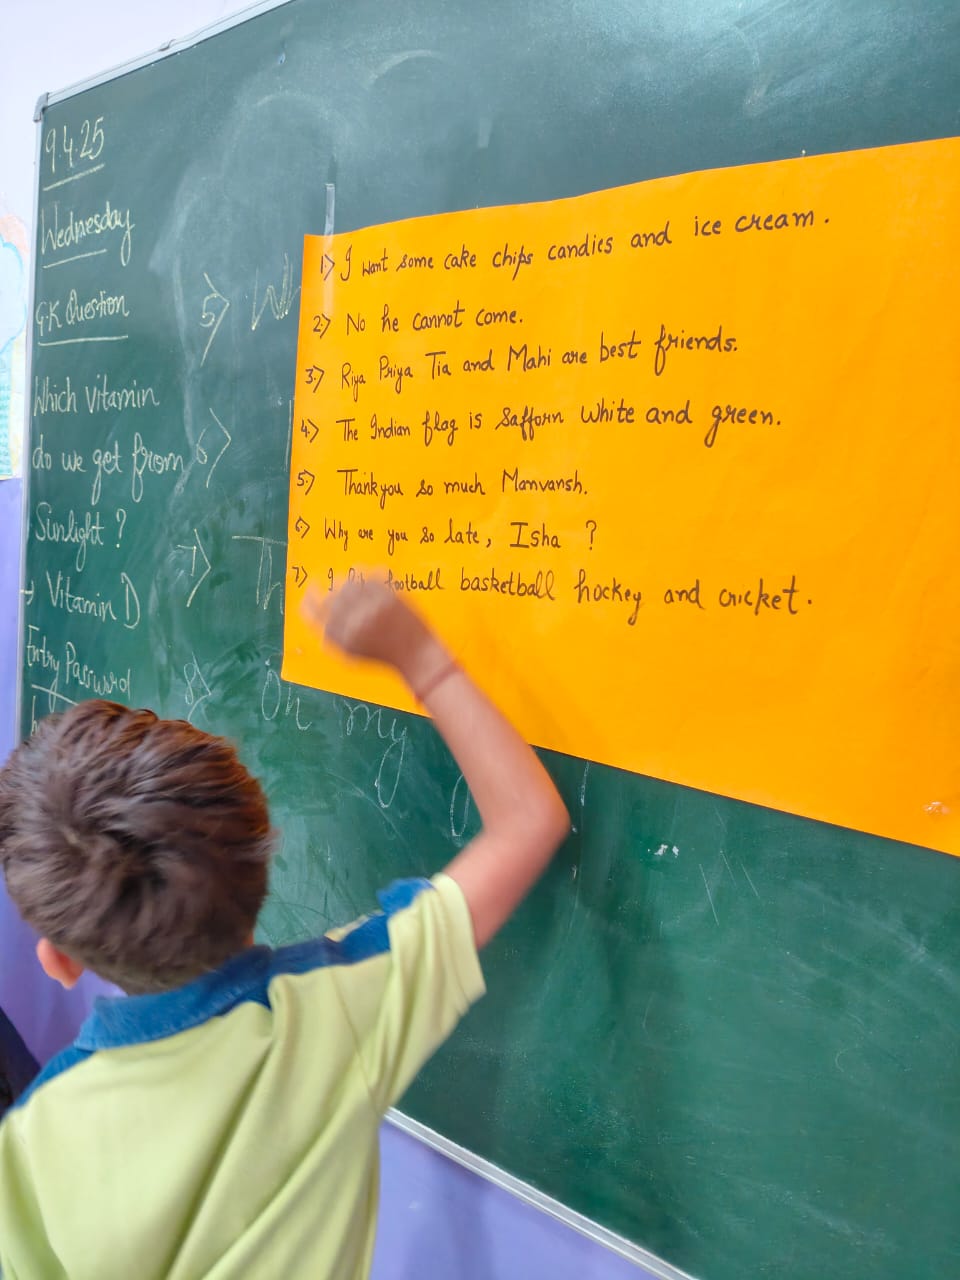 9.4.25
Wednesday
G.K Question
Which vitamin
do we get from
Sunlight ?
→ Vitamin D
Entry Password
5)
6)
7) Th
8) Oh my
1) I want some cake chips candies and ice cream.
2) No he cannot come.
3.) Riya Priya Tia and Mahi are best friends.
4.) The Indian flag is Safforn White and green.
5.) Thankyou so much Manvansh.
6) Why are you so late, Isha ?
7) I football basketball hockey and cricket.